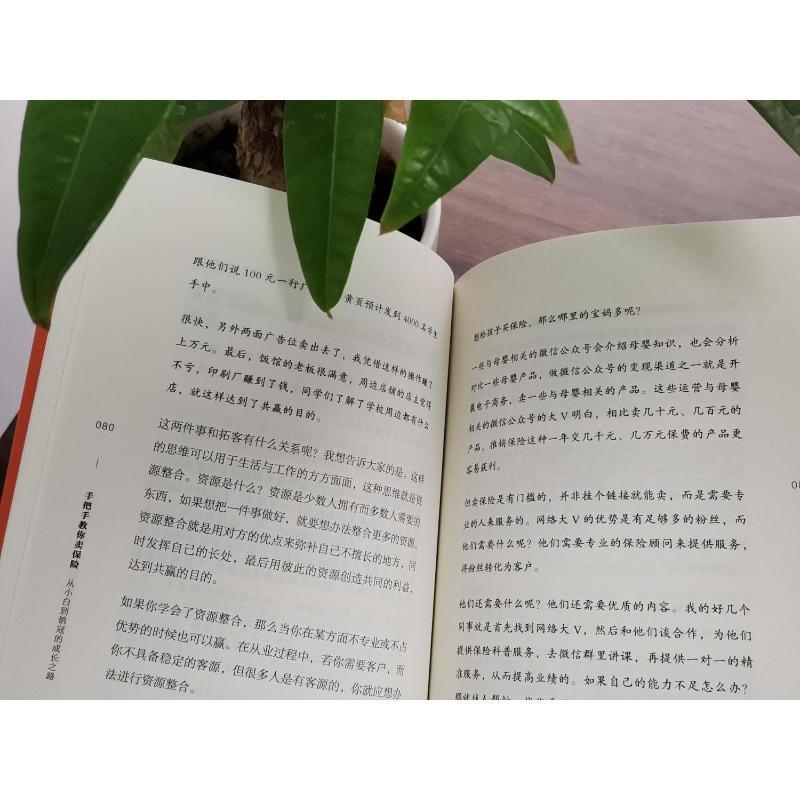 跟他们说 100 元一行广
黄页预计发到 4000 名学生
手中。
很快，另外两面广告位卖出去了，我凭借这样的操作赚了
上万元。最后，饭馆的老板很满意，周边店铺的店主觉得
不亏，印刷厂赚到了钱，同学们了解了学校周边都有什么
店，就这样达到了共赢的目的。
这两件事和拓客有什么关系呢？我想告诉大家的是，这样
的思维可以用于生活与工作的方方面面，这种思维就是资
源整合。资源是什么？资源是少数人拥有而多数人需要的
东西，如果想把一件事做好，就要想办法整合更多的资源。
资源整合就是用对方的优点来弥补自己不擅长的地方，同
时发挥自己的长处，最后用彼此的资源创造共同的利益，
达到共赢的目的。
如果你学会了资源整合，那么当你在某方面不专业或不占
优势的时候也可以赢。在从业过程中，若你需要客户，而
你不具备稳定的客源，但很多人是有客源的，你就应想办
法进行资源整合。
080
手把手教你卖保险
从小白到销冠的成长之路
想给孩子买保险，那么哪里的宝妈多呢？
一些与母婴相关的微信公众号会介绍母婴知识，也会分析
对比一些母婴产品，做微信公众号的变现渠道之一就是开
展电子商务，卖一些与母婴相关的产品。这些运营与母婴
相关的微信公众号的大 V 明白，相比卖几十元、几百元的
产品，推销保险这种一年交几千元、几万元保费的产品更
容易获利。
但卖保险是有门槛的，并非挂个链接就能卖，而是需要专
业的人来服务的。网络大 V 的优势是有足够多的粉丝，而
他们需要什么呢？他们需要专业的保险顾问来提供服务，
将粉丝转化为客户。
他们还需要什么呢？他们还需要优质的内容。我的好几个
同事就是首先找到网络大 V，然后和他们谈合作，为他们
提供保险科普服务，去微信群里讲课，再提供一对一的精
准服务，从而提高业绩的。如果自己的能力不足怎么办？